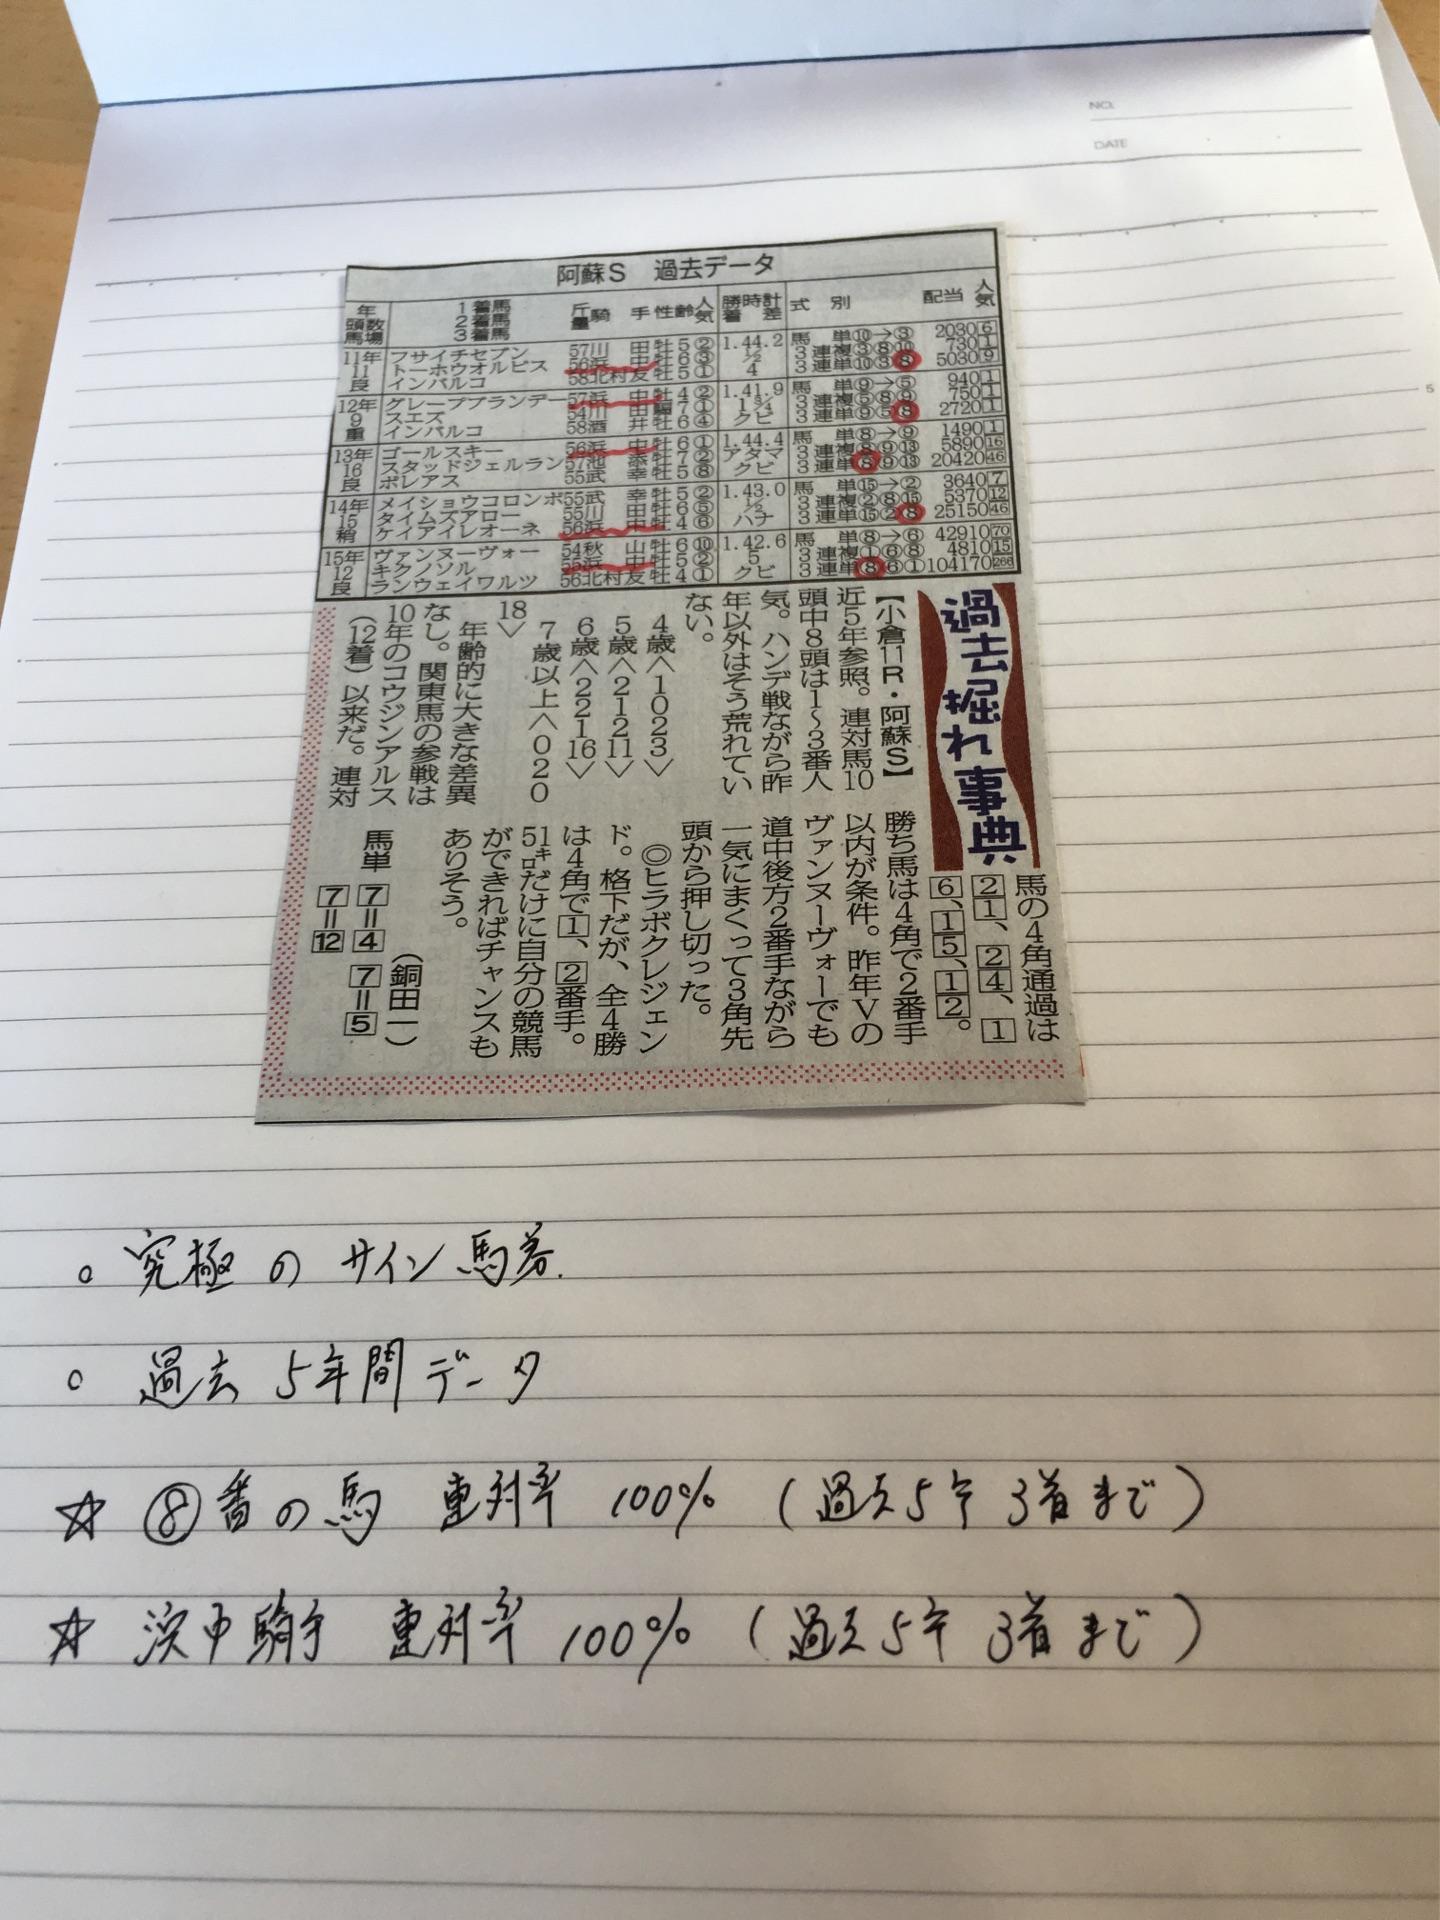 NO.
DATE
5
阿蘇S 過去データ
年 頭数 馬場 1着馬 2着馬 3着馬 斤量 騎手 性齢 人気 勝時計 着差 式別 配当 人気
11年 フサイチセブン 57川田牡5② 1.44.2 馬単⑩→③ 2030 6
11 トーホウオルビス 56浜中牡6③ ½ 3連複③⑧⑩ 730 1
良 インバルコ 58北村友牡5① 4 3連単⑩③⑧ 5030 9
12年 グレープブランデー 57浜中牡4② 1.41.9 馬単⑨→⑤ 940 1
9 スエズ 54川田騸7① 1¾ 3連複⑤⑧⑨ 750 1
重 インバルコ 58酒井牡6④ クビ 3連単⑨⑤⑧ 2720 1
13年 ゴールスキー 56浜中牡6① 1.44.4 馬単⑧→⑨ 1490 1
16 スタッドジェルラン 57池添牡7② アタマ 3連複⑧⑨⑬ 5890 16
良 ボレアス 55武幸牡5⑧ クビ 3連単⑧⑨⑬ 20420 46
14年 メイショウコロンボ 55武幸牡5② 1.43.0 馬単⑮→② 3640 7
15 タイムズアロー 55川田牡6⑤ ½ 3連複②⑧⑮ 5370 12
稍 ケイアイレオーネ 56浜中牡4⑥ ハナ 3連単⑮②⑧ 25150 46
15年 ヴァンヌーヴォー 54秋山牡6⑩ 1.42.6 馬単⑧→⑥ 42910 70
12 キクノソル 55浜中牡5② 5 3連複①⑥⑧ 4810 15
良 ランウェイワルツ 56北村友牡4① クビ 3連単⑧⑥① 104170 266
過去掘れ事典
【小倉11R・阿蘇S】
近5年参照。連対馬10
頭中8頭は1〜3番人
気。ハンデ戦ながら昨
年以外はそう荒れてい
ない。
4歳〈1023〉
5歳〈21211〉
6歳〈22116〉
7歳以上〈020
18〉
年齢的に大きな差異
なし。関東馬の参戦は
10年のコウジンアルス
(12着)以来だ。連対
馬の4角通過は
21、24、1
6、15、12。
勝ち馬は4角で2番手
以内が条件。昨年Vの
ヴァンヌーヴォーでも
道中後方2番手ながら
一気にまくって3角先
頭から押し切った。
◎ヒラボクレジェン
ド。格下だが、全4勝
は4角で1、2番手。
51㌔だけに自分の競馬
ができればチャンスも
ありそう。
(銅田一)
馬単 7=4 7=5
7=12
○ 究極のサイン馬券.
○ 過去5年間データ
☆ ⑧番の馬 連対率 100% (過去5年 3着まで)
☆ 浜中騎手 連対率 100% (過去5年 3着まで)